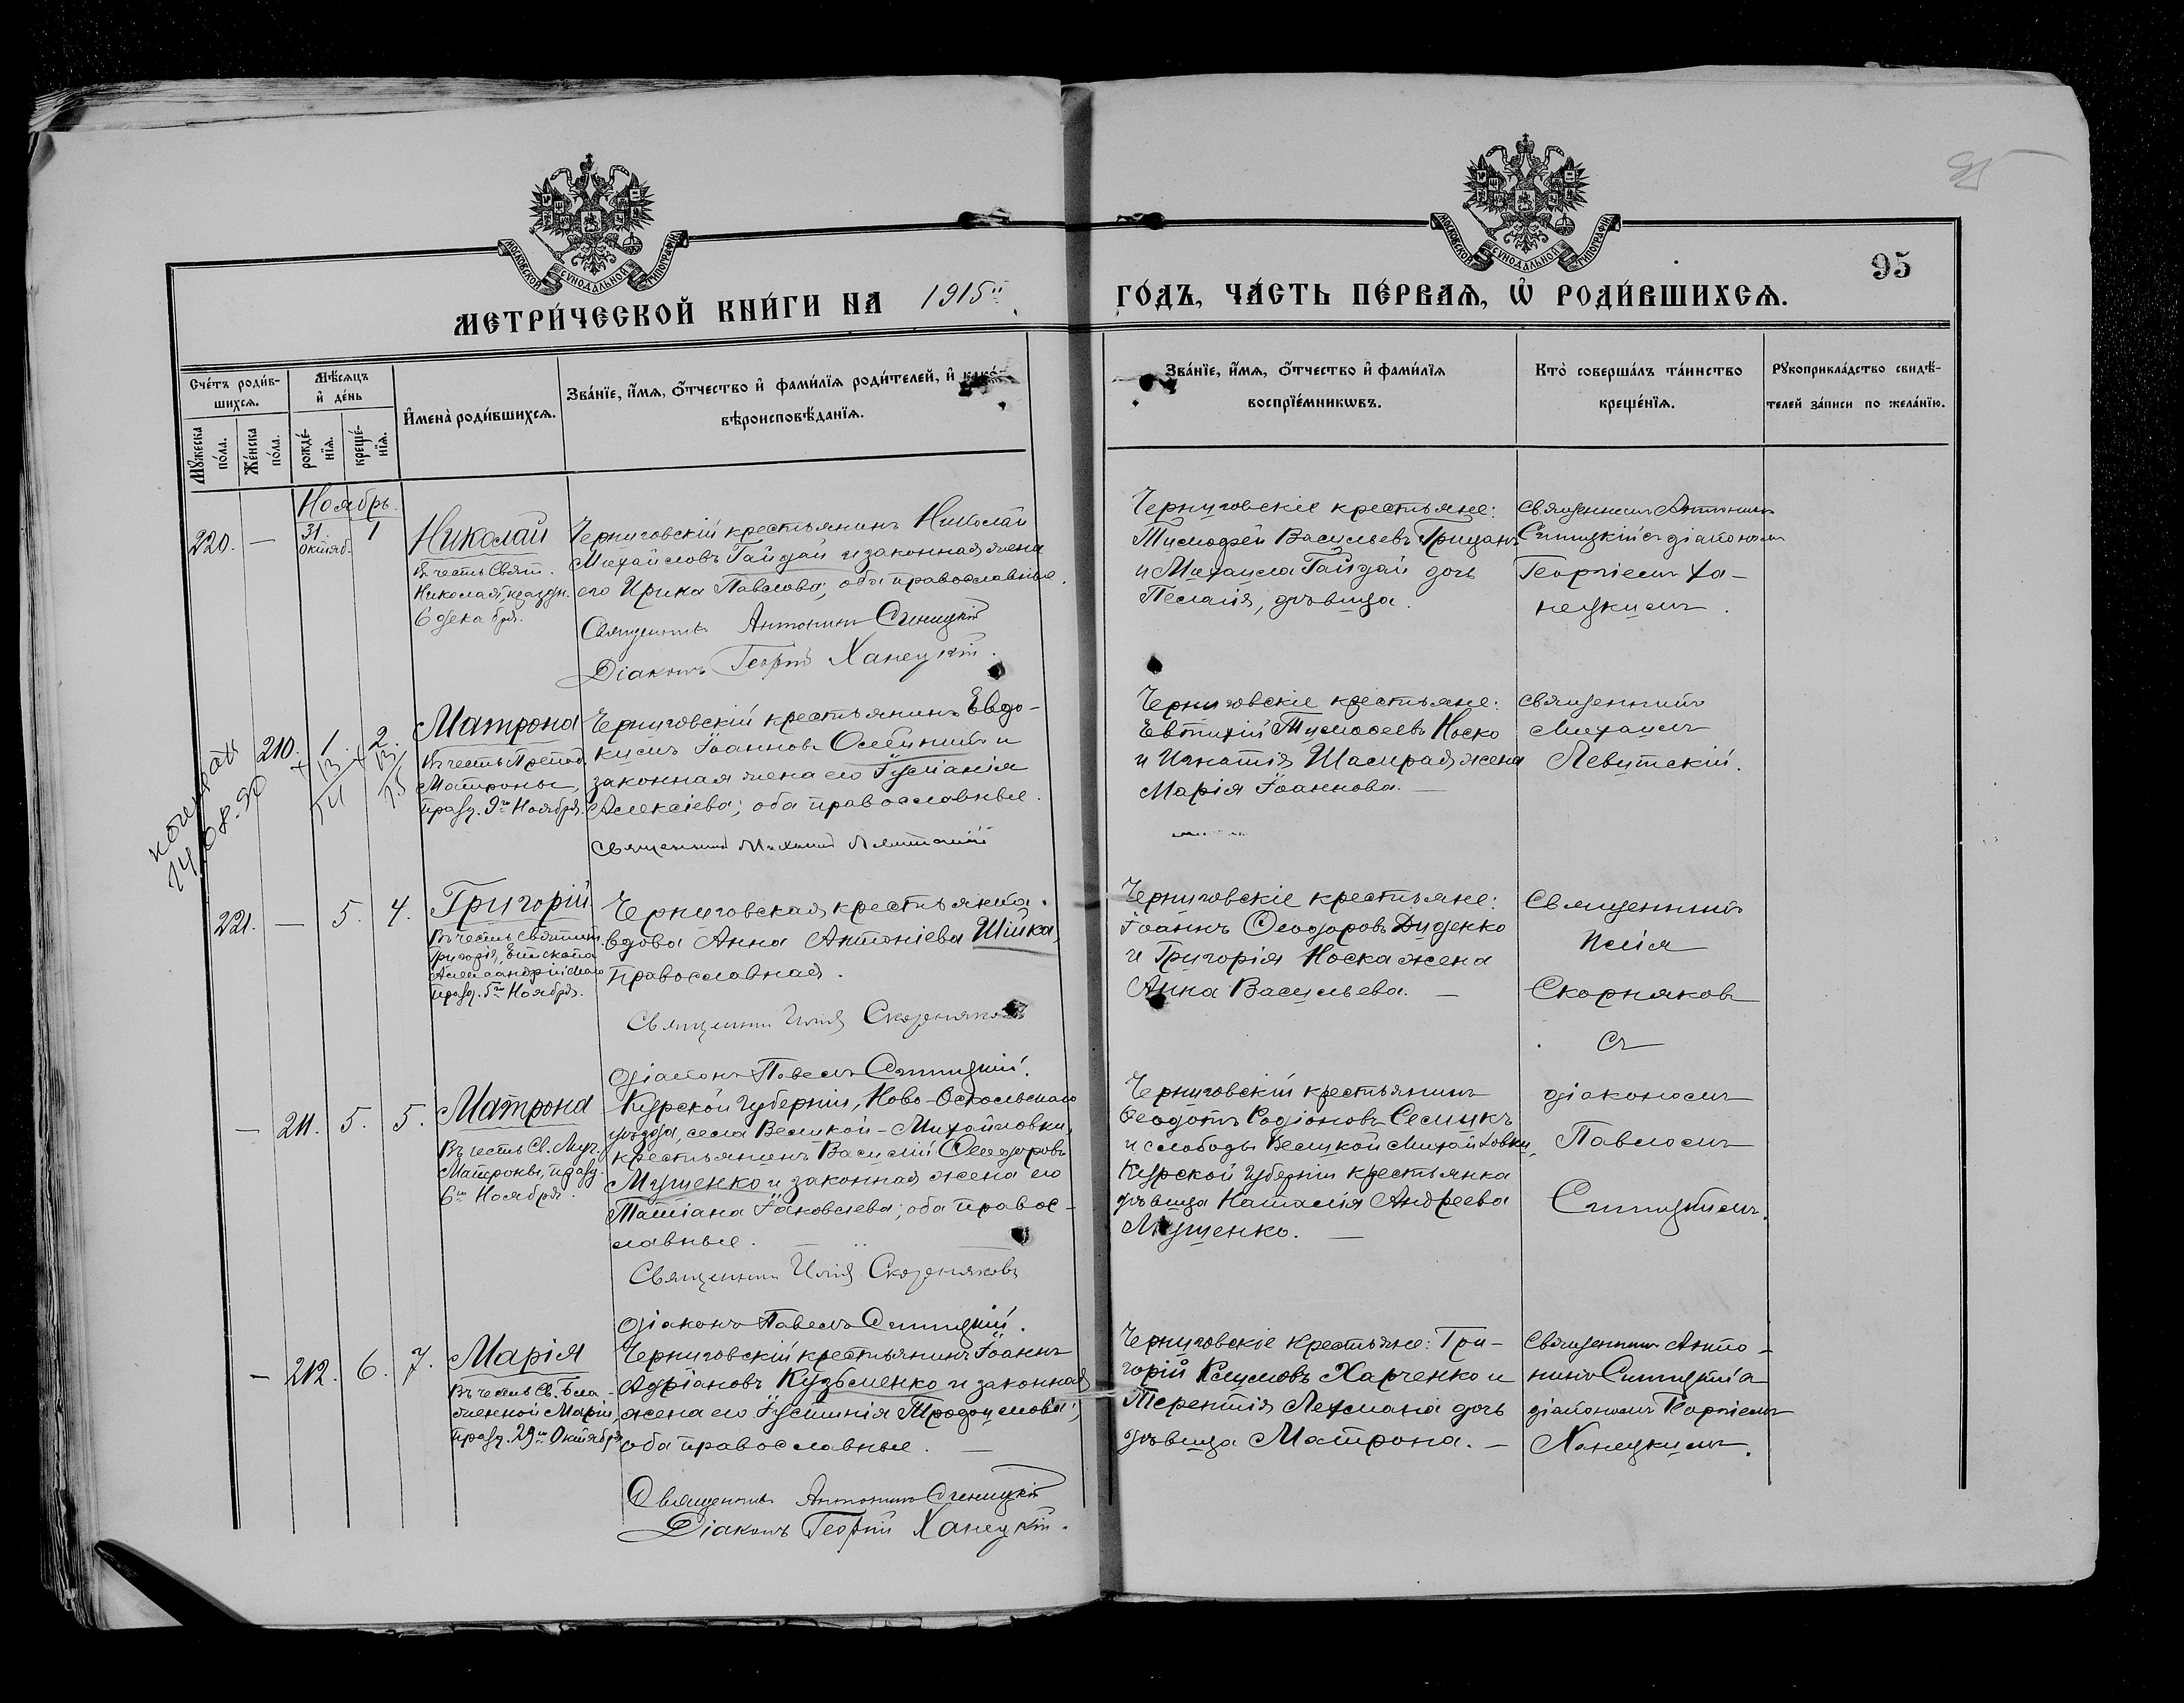 95
МОСКОВСКОЙ СѴНОДАЛЬНОЙ ТИПОГРАФІИ
МОСКОВСКОЙ СѴНОДАЛЬНОЙ ТИПОГРАФІИ
95
МЕТРИ́ЧЕСКОЙ КНИ́ГИ НА 1915й
ГО́ДЪ, ЧА́СТЬ ПЕ́РВАѦ, Ѡ҆ РОДИ́ВШИХСѦ.
Сче́тъ роди́в-
шихсѧ.
Мѣ́сѧцъ
и҆ де́нь
Мꙋ́жеска
по́ла.
Же́нска
по́ла.
рожде́-
нїѧ.
креще́-
нїѧ.
И҆мена̀ роди́вшихсѧ.
Зва́нїе, и҆́мѧ, ѻ҆́тчество и҆ фами́лїѧ роди́телей, и҆ како́-
вѣроисповѣ́данїѧ.
Зва́нїе, и҆́мѧ, ѻ҆́тчество и҆ фами́лїѧ
воспрїе́мникѡвъ.
Кто̀ соверша́лъ та́инство
креще́нїѧ.
Рꙋкоприкла́дство свидѣ́-
телей за́писи по жела́нїю.
Ноябрь.
220. — 31 октяб. 1
Николай
Въ честь Свят.
Николая, праздн.
6 декабря.
Черниговскій крестьянинъ Николай
Михайловъ Гайдай и законная жена
его Ирина Павлова, оба православные.
Священникъ Антонинъ Синицкій
Діаконъ Георгій Ханецкій.
Черниговскіе крестьяне:
Тимофей Васильевъ Грицанъ
и Михаила Гайдай дочь
Пелагія, дѣвица.
Священникъ Антонинъ
Синицкій съ діакономъ
Георгіемъ Ха-
нецкимъ.
14.08.90
210. 1. 2.
13 13
14 15
Матрона
Въ честь Препод.
Матроны,
празд. 9го Ноября.
Черниговскій крестьянинъ Евдо-
кимъ Іоанновъ и
законная жена его Іуліанія
Алексіева; оба православные.
Священникъ Михаилъ Левитскій
Черниговскіе крестьяне:
Евтихій Тимофеевъ Носко
и Игнатія жена
Марія Іоаннова. —
Священникъ
Михаилъ
Левитскій.
221. — 5. 4.
Григорій
Въ честь Святит.
Григорія, Епископа
Александрійскаго
празд. 5го Ноября.
Черниговская крестьянка
вдова Анна Антоніева Шійка,
православная.
Священникъ Илія Скорняковъ
діаконъ Павелъ Синицкій.
Черниговскіе крестьяне:
Іоаннъ Ѳеодоровъ Диденко
и Григорія Носка жена
Анна Васильева. —
Священникъ
Илія
Скорняковъ
съ
діакономъ
Павломъ
Синицкимъ.
— 211. 5. 5.
Матрона
Въ честь Св. Муч.
Матроны, празд.
6го Ноября.
Курской губерніи, Ново-Оскольскаго
уѣзда, села Великой-Михайловки,
крестьянинъ Василій Ѳеодоровъ
Мущенко и законная жена его
Татіана Іаковлева; оба правос-
лавные.
Священникъ Илія Скорняковъ
діаконъ Павелъ Синицкій.
Черниговскій крестьянинъ
Ѳеодотъ Родіоновъ
и слободы Великой Михайловки,
Курской губерніи крестьянка
дѣвица Наталія Андреева
Мущенко. —
— 212. 6. 7.
Марія
Въ честь Св. Бла-
женной Маріи,
празд. 29го Октября
Черниговскій крестьянинъ Іоаннъ
Адріановъ Кузьменко и законная
жена его Іустинія Трофимова;
оба православные. —
Священникъ Антонинъ Синицкій
Діаконъ Георгій Ханецкій.
Черниговскіе крестьяне: Гри-
горій Климовъ Харченко и
Терентія Лехмана дочь
дѣвица Матрона. —
Священникъ Анто-
нинъ Синицкій съ
діакономъ Георгіемъ
Ханецкимъ.